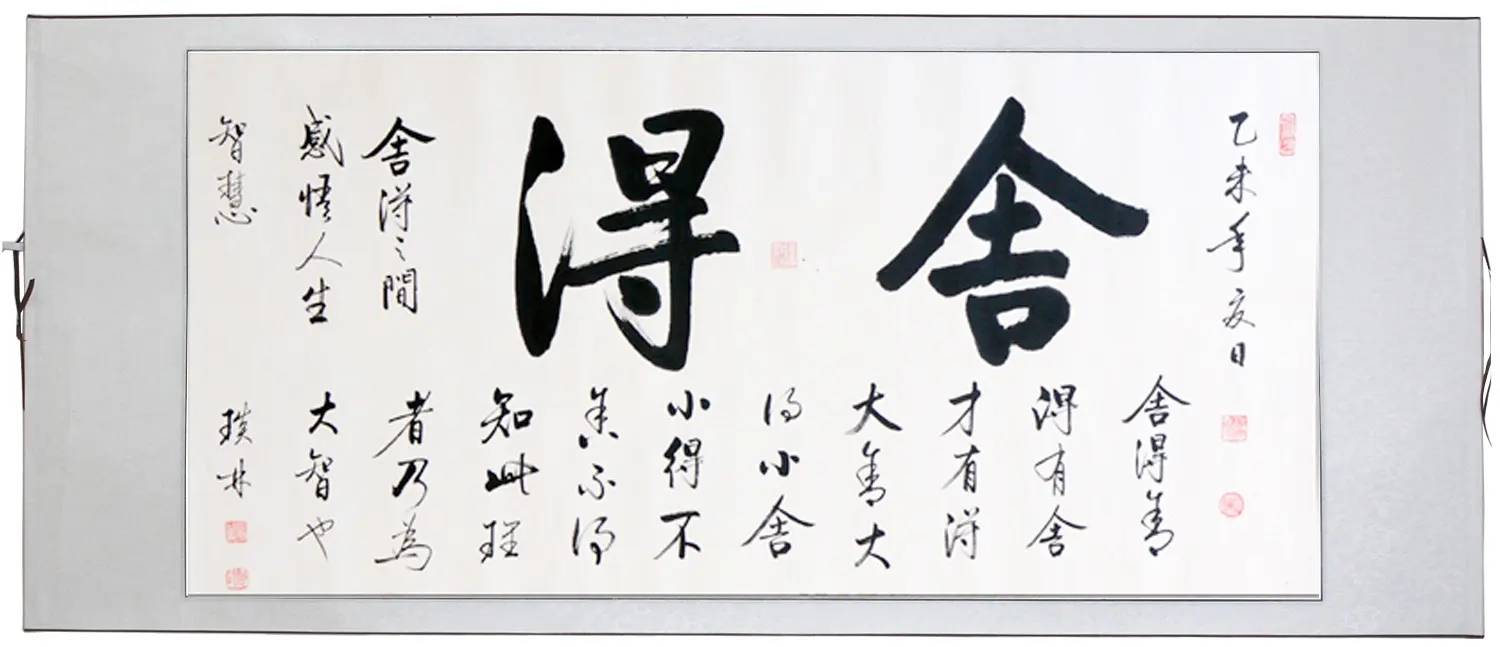 乙未年夏日
舍得
舍得舍
得有舍
才有得
大舍大
得小舍
小得不
舍不得
知此理
者乃為
大智也
舍得之間
感悟人生
智慧